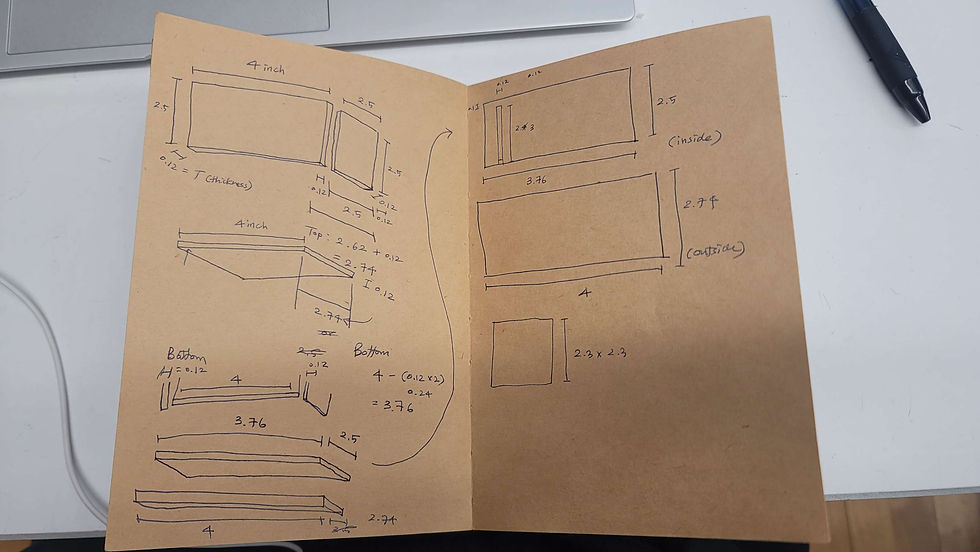 4 inch
2.5
2.5
2.5
0.12 = T (thickness)
0.12
0.12
0.12
2.5
4 inch
Top: 2.62 + 0.12
= 2.74
0.12
2.74
or
2.5
Bottom
= 0.12
4
0.12
Bottom
4 - (0.12 x 2)
0.24
= 3.76
3.76
2.5
4
2.5
2.74
0.12
0.12
2.5
(inside)
3.76
2.74
(outside)
4
2.3 x 2.3